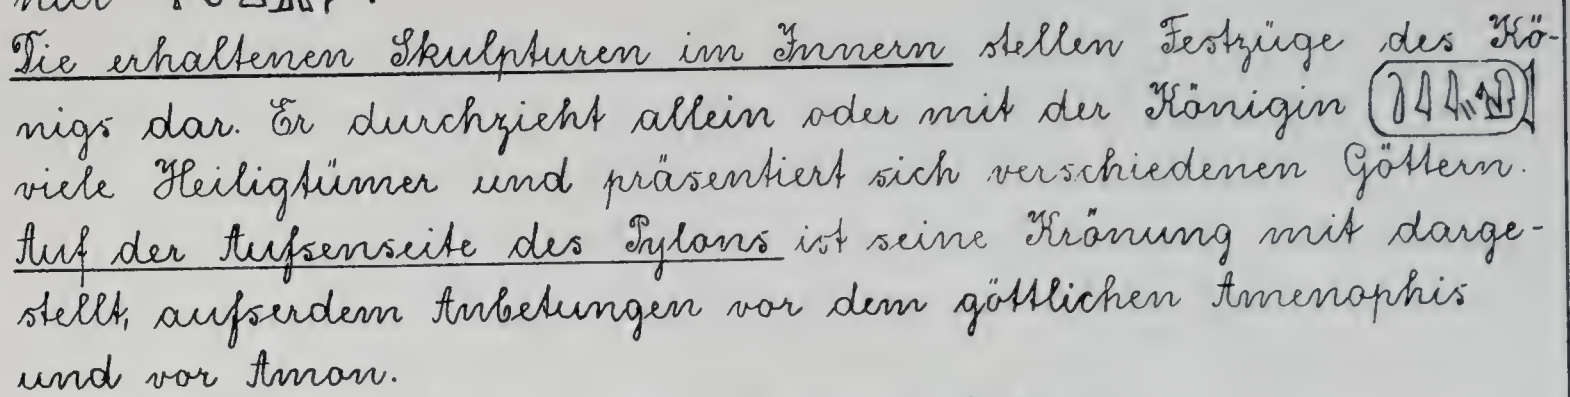 Die erhaltenen Skulpturen im Innern stellen Festzüge des Kö-
nigs dar. Er durchzieht allein oder mit der Königin
viele Heiligtümer und präsentiert sich verschiedenen Göttern.
Auf der Aufsenseite des Pylons ist seine Krönung mit darge-
stellt, aufserdem Anbetungen vor dem göttlichen Amenophis
und vor Amon.